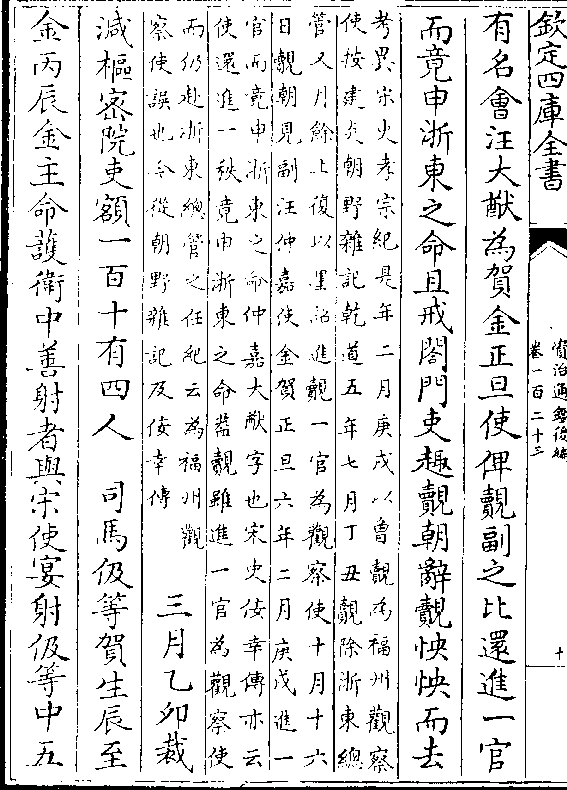 欽定四庫全書
資治通鑑後編
卷一百二十三
十
有名會汪大猷為賀金正旦使俾覿副之比還進一官
而竟申浙東之命且戒閤門吏趣覿朝辭覿怏怏而去
考異宋史孝宗紀是年二月庚戌以曾覿為福州觀察
使按建炎朝野雜記乾道五年七月丁丑覿除浙東總
管又月餘上復以墨詔進覿一官為觀察使十月十六
日覿朝見副汪仲嘉使金賀正旦六年二月庚戌進一
官而竟申浙東之命仲嘉大猷字也宋史佞幸傳亦云
使還進一秩竟申浙東之命葢覿雖進一官為觀察使
而仍赴浙東總管之任紀云為福州觀
察使誤也今從朝野雜記及佞幸傳
三月乙卯裁
減樞密院吏額一百十有四人　司馬伋等賀生辰至
金丙辰金主命護衛中善射者與宋使宴射伋等中五